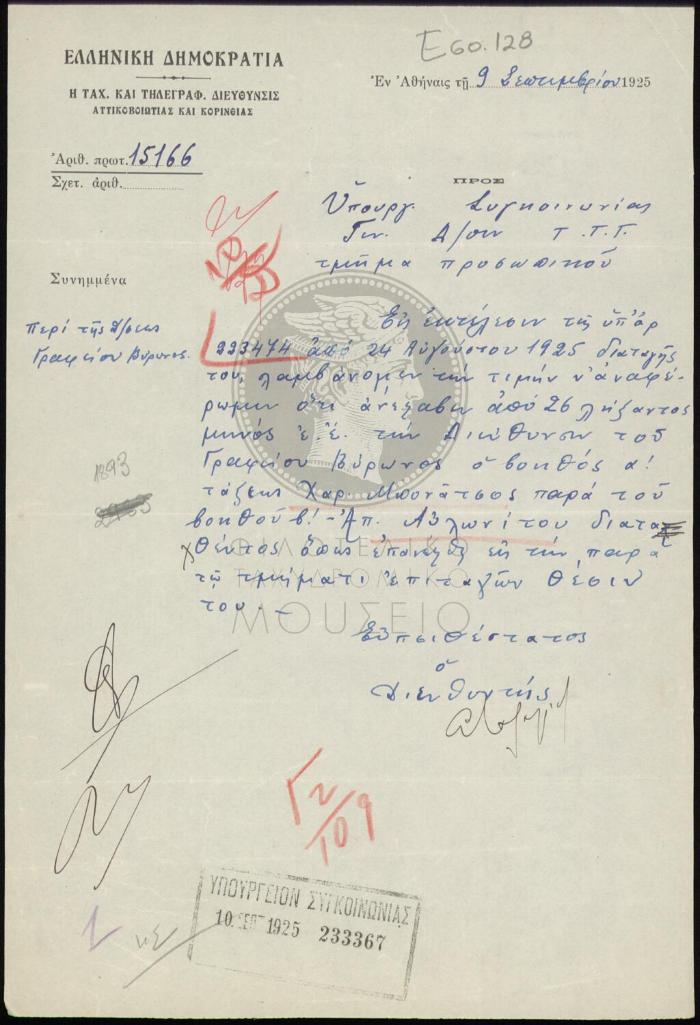 Εgο.128
ΕΛΛΗΝΙΚΗ ΔΗΜΟΚΡΑΤΙΑ
Η ΤΑΧ. ΚΑΙ ΤΗΛΕΓΡΑΦ. ΔΙΕΥΘΥΝΣΙΣ
ΑΤΤΙΚΟΒΟΙΩΤΙΑΣ ΚΑΙ ΚΟΡΙΝΘΙΑΣ
Ἐν Ἀθήναις τῇ 9 Σεπτεμβρίου 1925
Ἀριθ. πρωτ. 15166
Σχετ. ἀριθ.
ΠΡΟΣ
Ὑπουργ. Συγκοινωνίας
Γεν. Δ/σιν Τ.Τ.Τ.
τμῆμα προσωπικοῦ
Συνημμένα
Περὶ τῆς Δ/σεως
Γραφείου Βύρωνος.
Εἰς ἐκτέλεσιν τῆς ὑπ' ἀρ
223474 ἀπὸ 24 Αὐγούστου 1925 διαταγῆς
του, λαμβάνομεν τὴν τιμὴν ν' ἀναφέ-
ρωμεν ὅτι ἀνέλαβεν ἀπὸ 26 λήξαντος
μηνὸς ἐ.ἔ. τὴν Διεύθυνσιν τοῦ
Γραφείου Βύρωνος ὁ βοηθὸς α!
τάξεως Χαρ. Μπονάτσος παρὰ τοῦ
βοηθοῦ β! - Ἀπ. Αὐλωνίτου διατα
χθέντος ὅπως ἐπανέλθῃ εἰς τὴν παρὰ
τῷ τμήματι ἐπιταγῶν θέσιν
του. –
1893
ΦΙΛΟΤΕΛΙΚΟ
ΤΑΧΥΔΡΟΜΙΚΟ
ΜΟΥΣΕΙΟ
Εὐπειθέστατος
ὁ
Διευθυντής
12/109
ΥΠΟΥΡΓΕΙΟΝ ΣΥΓΚΟΙΝΩΝΙΑΣ
10 ΣΕΠΤ 1925 233367